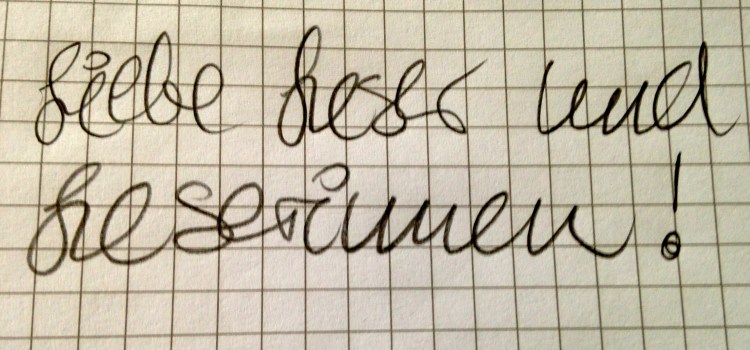 Liebe Leser und
Leserinnen!